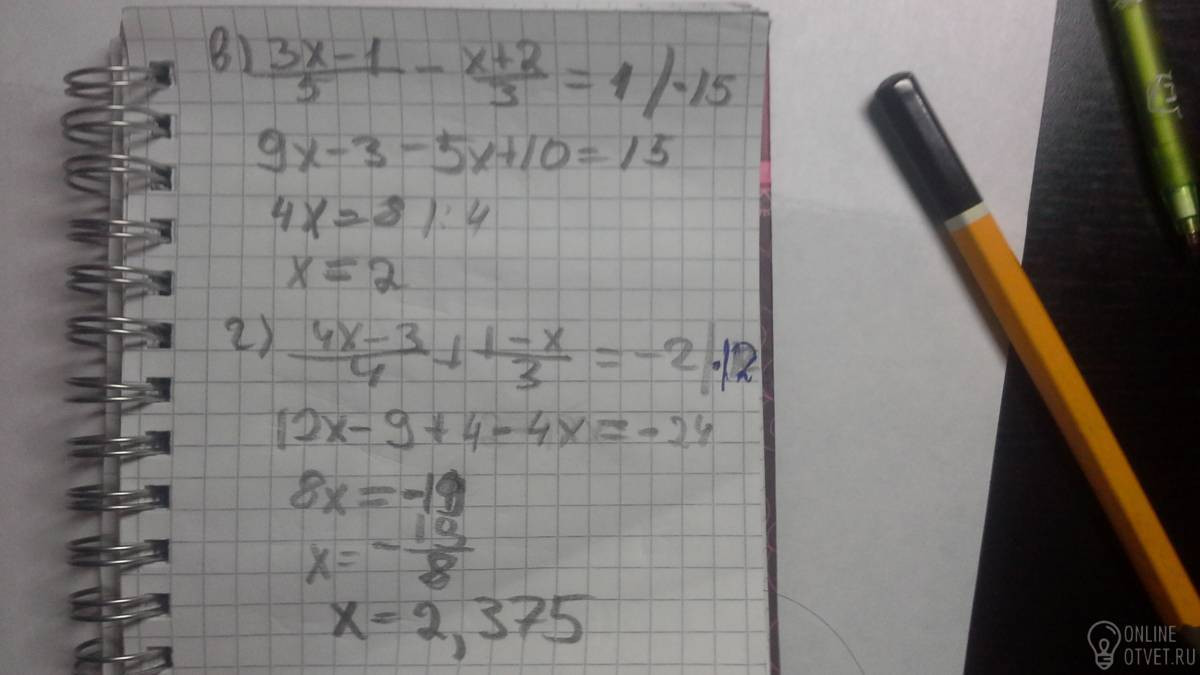 в) 3x-1/5 - x+2/3 = 1 /·15
9x-3-5x+10=15
4x=8 /:4
x=2
г) 4x-3/4 + 1-x/3 = -2 /·12
12x-9+4-4x=-24
8x=-19
x=-19/8
x=2,375
ONLINE
OTVET.RU